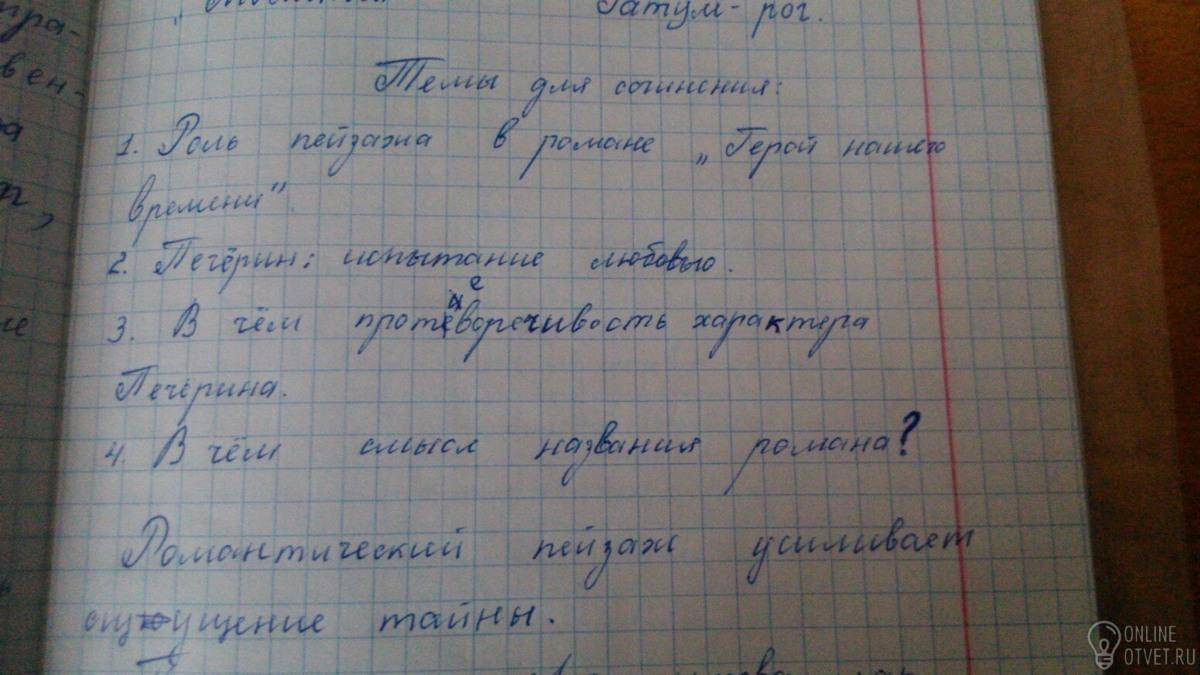 Татум - рог.
Темы для сочинения:
1. Роль пейзажа в романе „Герой нашего
времени".
2. Печёрин: испытание любовью.
3. В чём противоречивость характера
Печёрина.
4. В чём смысл названия романа?
Романтический пейзаж усиливает
ощущение тайны.
ONLINE
OTVET.RU